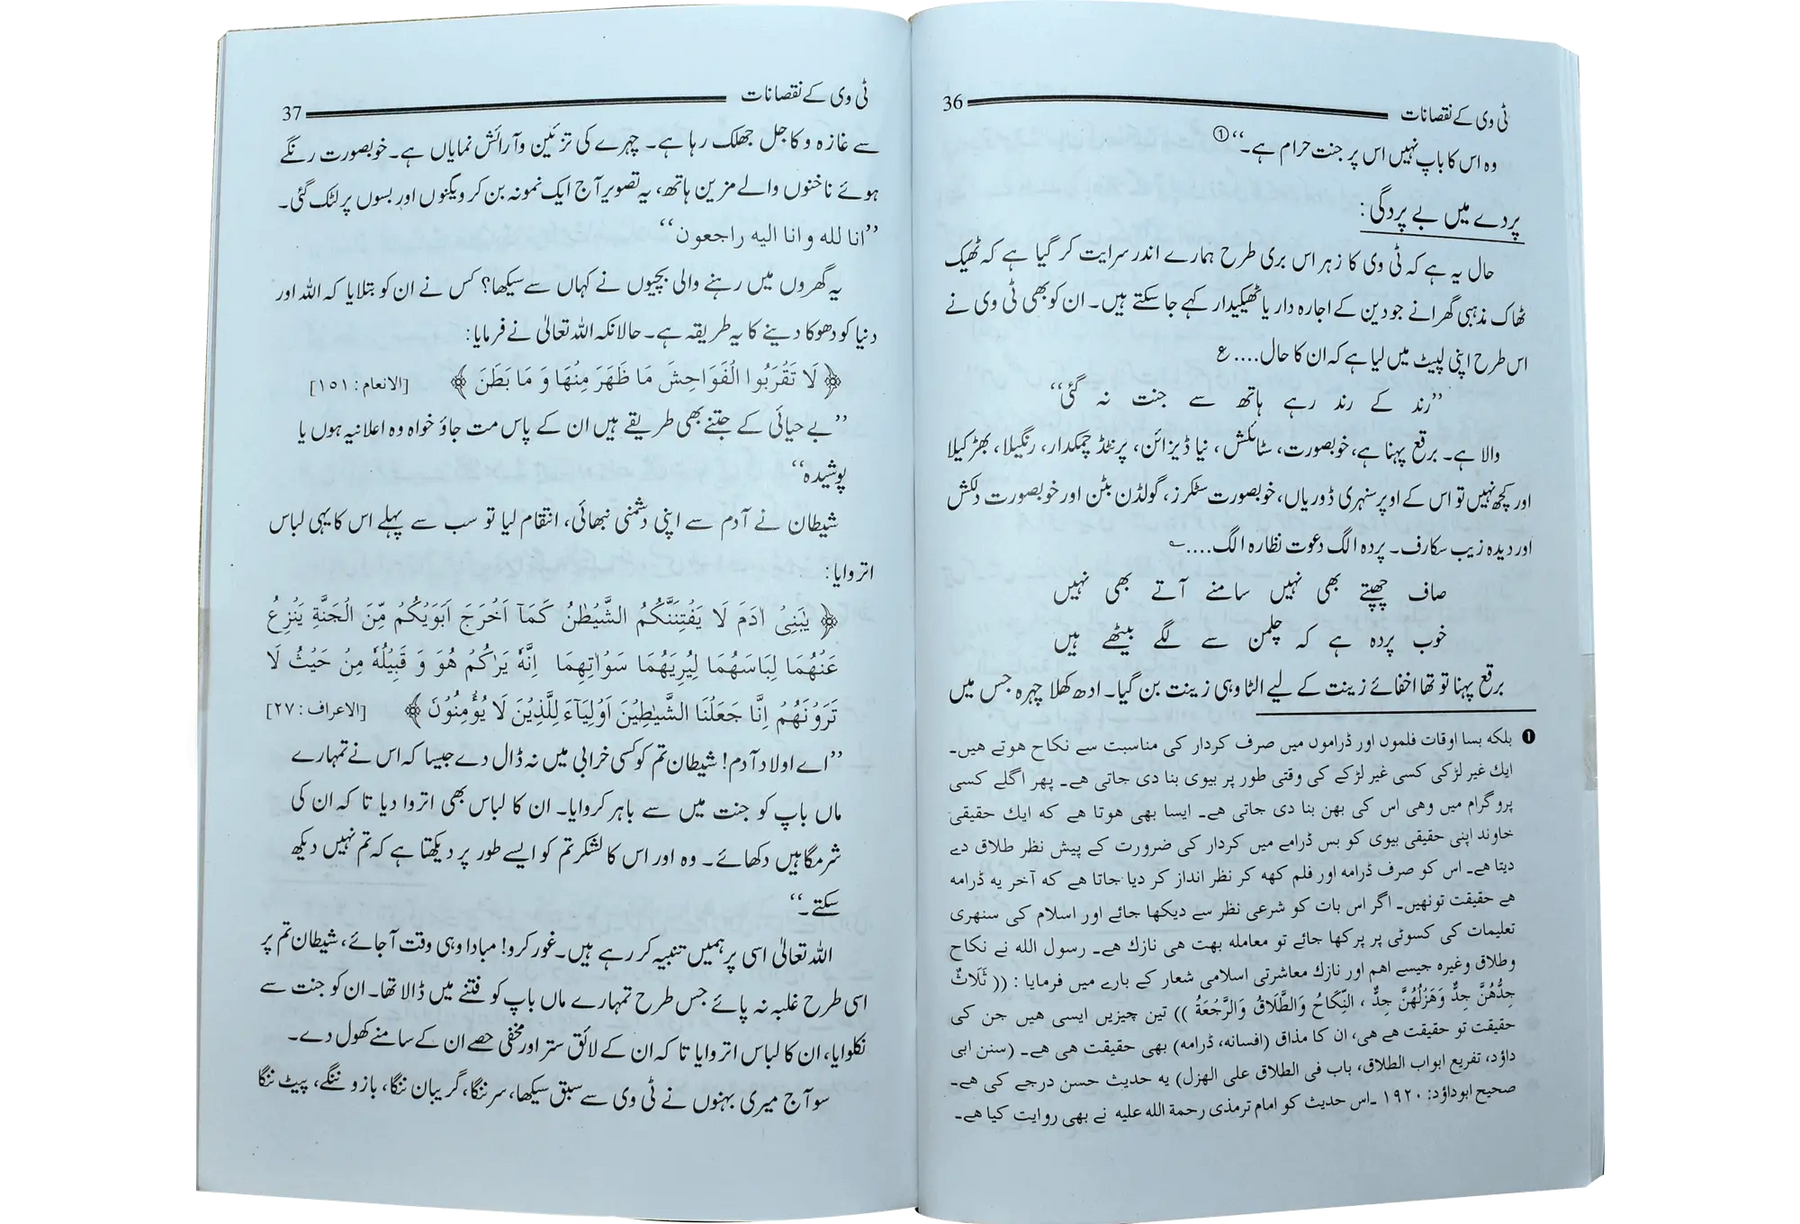 ٹی وی کے نقصانات 36
وہ اس کا باپ نہیں اس پر جنت حرام ہے۔‘‘①
پردے میں بے پردگی:
حال یہ ہے کہ ٹی وی کا زہر اس بری طرح ہمارے اندر سرایت کر گیا ہے کہ ٹھیک
ٹھاک مذہبی گھرانے جو دین کے اجارہ دار یا ٹھیکیدار کہے جا سکتے ہیں۔ ان کو بھی ٹی وی نے
اس طرح اپنی لپیٹ میں لیا ہے کہ ان کا حال.... ع
’’رند کے رند رہے ہاتھ سے جنت نہ گئی‘‘
والا ہے۔ برقع پہنا ہے، خوبصورت، سٹائلش، نیا ڈیزائن، پرنٹڈ چمکدار، رنگیلا، بھڑکیلا
اور کچھ نہیں تو اس کے اوپر سنہری ڈوریاں، خوبصورت سٹکرز، گولڈن بٹن اور خوبصورت دلکش
اور دیدہ زیب سکارف۔ پردہ الگ دعوت نظارہ الگ....؎
صاف چھپتے بھی نہیں سامنے آتے بھی نہیں
خوب پردہ ہے کہ چلمن سے لگے بیٹھے ہیں
برقع پہنا تو تھا اخفائے زینت کے لیے الٹا وہی زینت بن گیا۔ ادھ کھلا چہرہ جس میں
❶ بلکہ بسا اوقات فلموں اور ڈراموں میں صرف کردار کی مناسبت سے نکاح ہوتے ہیں۔
ایك غیر لڑکی کسی غیر لڑکے کی وقتی طور پر بیوی بنا دی جاتی ہے۔ پھر اگلے کسی
پروگرام میں وہی اس کی بهن بنا دی جاتی ہے۔ ایسا بهی ہوتا ہے که ایك حقیقی
خاوند اپنی حقیقی بیوی کو بس ڈرامے میں کردار کی ضرورت کے پیش نظر طلاق دے
دیتا ہے۔ اس کو صرف ڈرامه اور فلم کهه کر نظر انداز کر دیا جاتا ہے که آخر یه ڈرامه
ہے حقیقت تونہیں۔ اگر اس بات کو شرعی نظر سے دیکھا جائے اور اسلام کی سنهری
تعلیمات کی کسوٹی پر پرکھا جائے تو معامله بهت هی نازك ہے۔ رسول الله نے نکاح
وطلاق وغیره جیسے اهم اور نازك معاشرتی اسلامی شعار کے بارے میں فرمایا : (( ثَلَاثٌ
جِدُّهُنَّ جِدٌّ وَهَزْلُهُنَّ جِدٌّ ، النِّكَاحُ وَالطَّلَاقُ وَالرَّجْعَةُ )) تین چیزیں ایسی هیں جن کی
حقیقت تو حقیقت هے هی، ان کا مذاق (افسانه، ڈرامه) بهی حقیقت هی هے۔ (سنن ابی
داؤد، تفریع ابواب الطلاق، باب فی الطلاق علی الهزل) یه حدیث حسن درجے کی هے۔
صحیح ابوداؤد: ۱۹۲۰ ۔اس حدیث کو امام ترمذی رحمة الله علیه نے بهی روایت کیا هے۔
ٹی وی کے نقصانات 37
سے غازہ و کاجل جھلک رہا ہے۔ چہرے کی تزئین و آرائش نمایاں ہے۔ خوبصورت رنگے
ہوئے ناخنوں والے مزین ہاتھ، یہ تصویر آج ایک نمونہ بن کر ویگنوں اور بسوں پر لٹک گئی۔
’’انا لله و انا اليه راجعون‘‘
یہ گھروں میں رہنے والی بچیوں نے کہاں سے سیکھا؟ کس نے ان کو بتلایا کہ اللہ اور
دنیا کو دھوکا دینے کا یہ طریقہ ہے۔ حالانکہ اللہ تعالیٰ نے فرمایا:
﴿لَا تَقْرَبُوا الْفَوَاحِشَ مَا ظَهَرَ مِنْهَا وَ مَا بَطَنَ﴾ [الانعام : ۱۵۱]
’’بے حیائی کے جتنے بھی طریقے ہیں ان کے پاس مت جاؤ خواہ وہ اعلانیہ ہوں یا
پوشیدہ‘‘
شیطان نے آدم سے اپنی دشمنی نبھائی، انتقام لیا تو سب سے پہلے اس کا یہی لباس
اتروایا:
﴿يٰبَنِىْٓ اٰدَمَ لَا يَفْتِنَنَّكُمُ الشَّيْطٰنُ كَمَآ اَخْرَجَ اَبَوَيْكُمْ مِّنَ الْجَنَّةِ يَنْزِعُ
عَنْهُمَا لِبَاسَهُمَا لِيُرِيَهُمَا سَوْاٰتِهِمَا اِنَّهٗ يَرٰكُمْ هُوَ وَ قَبِيْلُهٗ مِنْ حَيْثُ لَا
تَرَوْنَهُمْ اِنَّا جَعَلْنَا الشَّيٰطِيْنَ اَوْلِيَآءَ لِلَّذِيْنَ لَا يُؤْمِنُوْنَ﴾ [الاعراف : ۲۷]
’’اے اولاد آدم! شیطان تم کو کسی خرابی میں نہ ڈال دے جیسا کہ اس نے تمہارے
ماں باپ کو جنت میں سے باہر کروایا۔ ان کا لباس بھی اتروا دیا تا کہ ان کی
شرمگاہیں دکھائے۔ وہ اور اس کا لشکر تم کو ایسے طور پر دیکھتا ہے کہ تم نہیں دیکھ
سکتے۔‘‘
اللہ تعالیٰ اسی پر ہمیں تنبیہ کر رہے ہیں۔ غور کرو! مبادا وہی وقت آ جائے، شیطان تم پر
اسی طرح غلبہ نہ پائے جس طرح تمہارے ماں باپ کو فتنے میں ڈالا تھا۔ ان کو جنت سے
نکلوایا، ان کا لباس اتروایا تا کہ ان کے لائق ستر اور مخفی حصے ان کے سامنے کھول دے۔
سو آج میری بہنوں نے ٹی وی سے سبق سیکھا، سر ننگا، گریبان ننگا، بازو ننگے، پیٹ ننگا